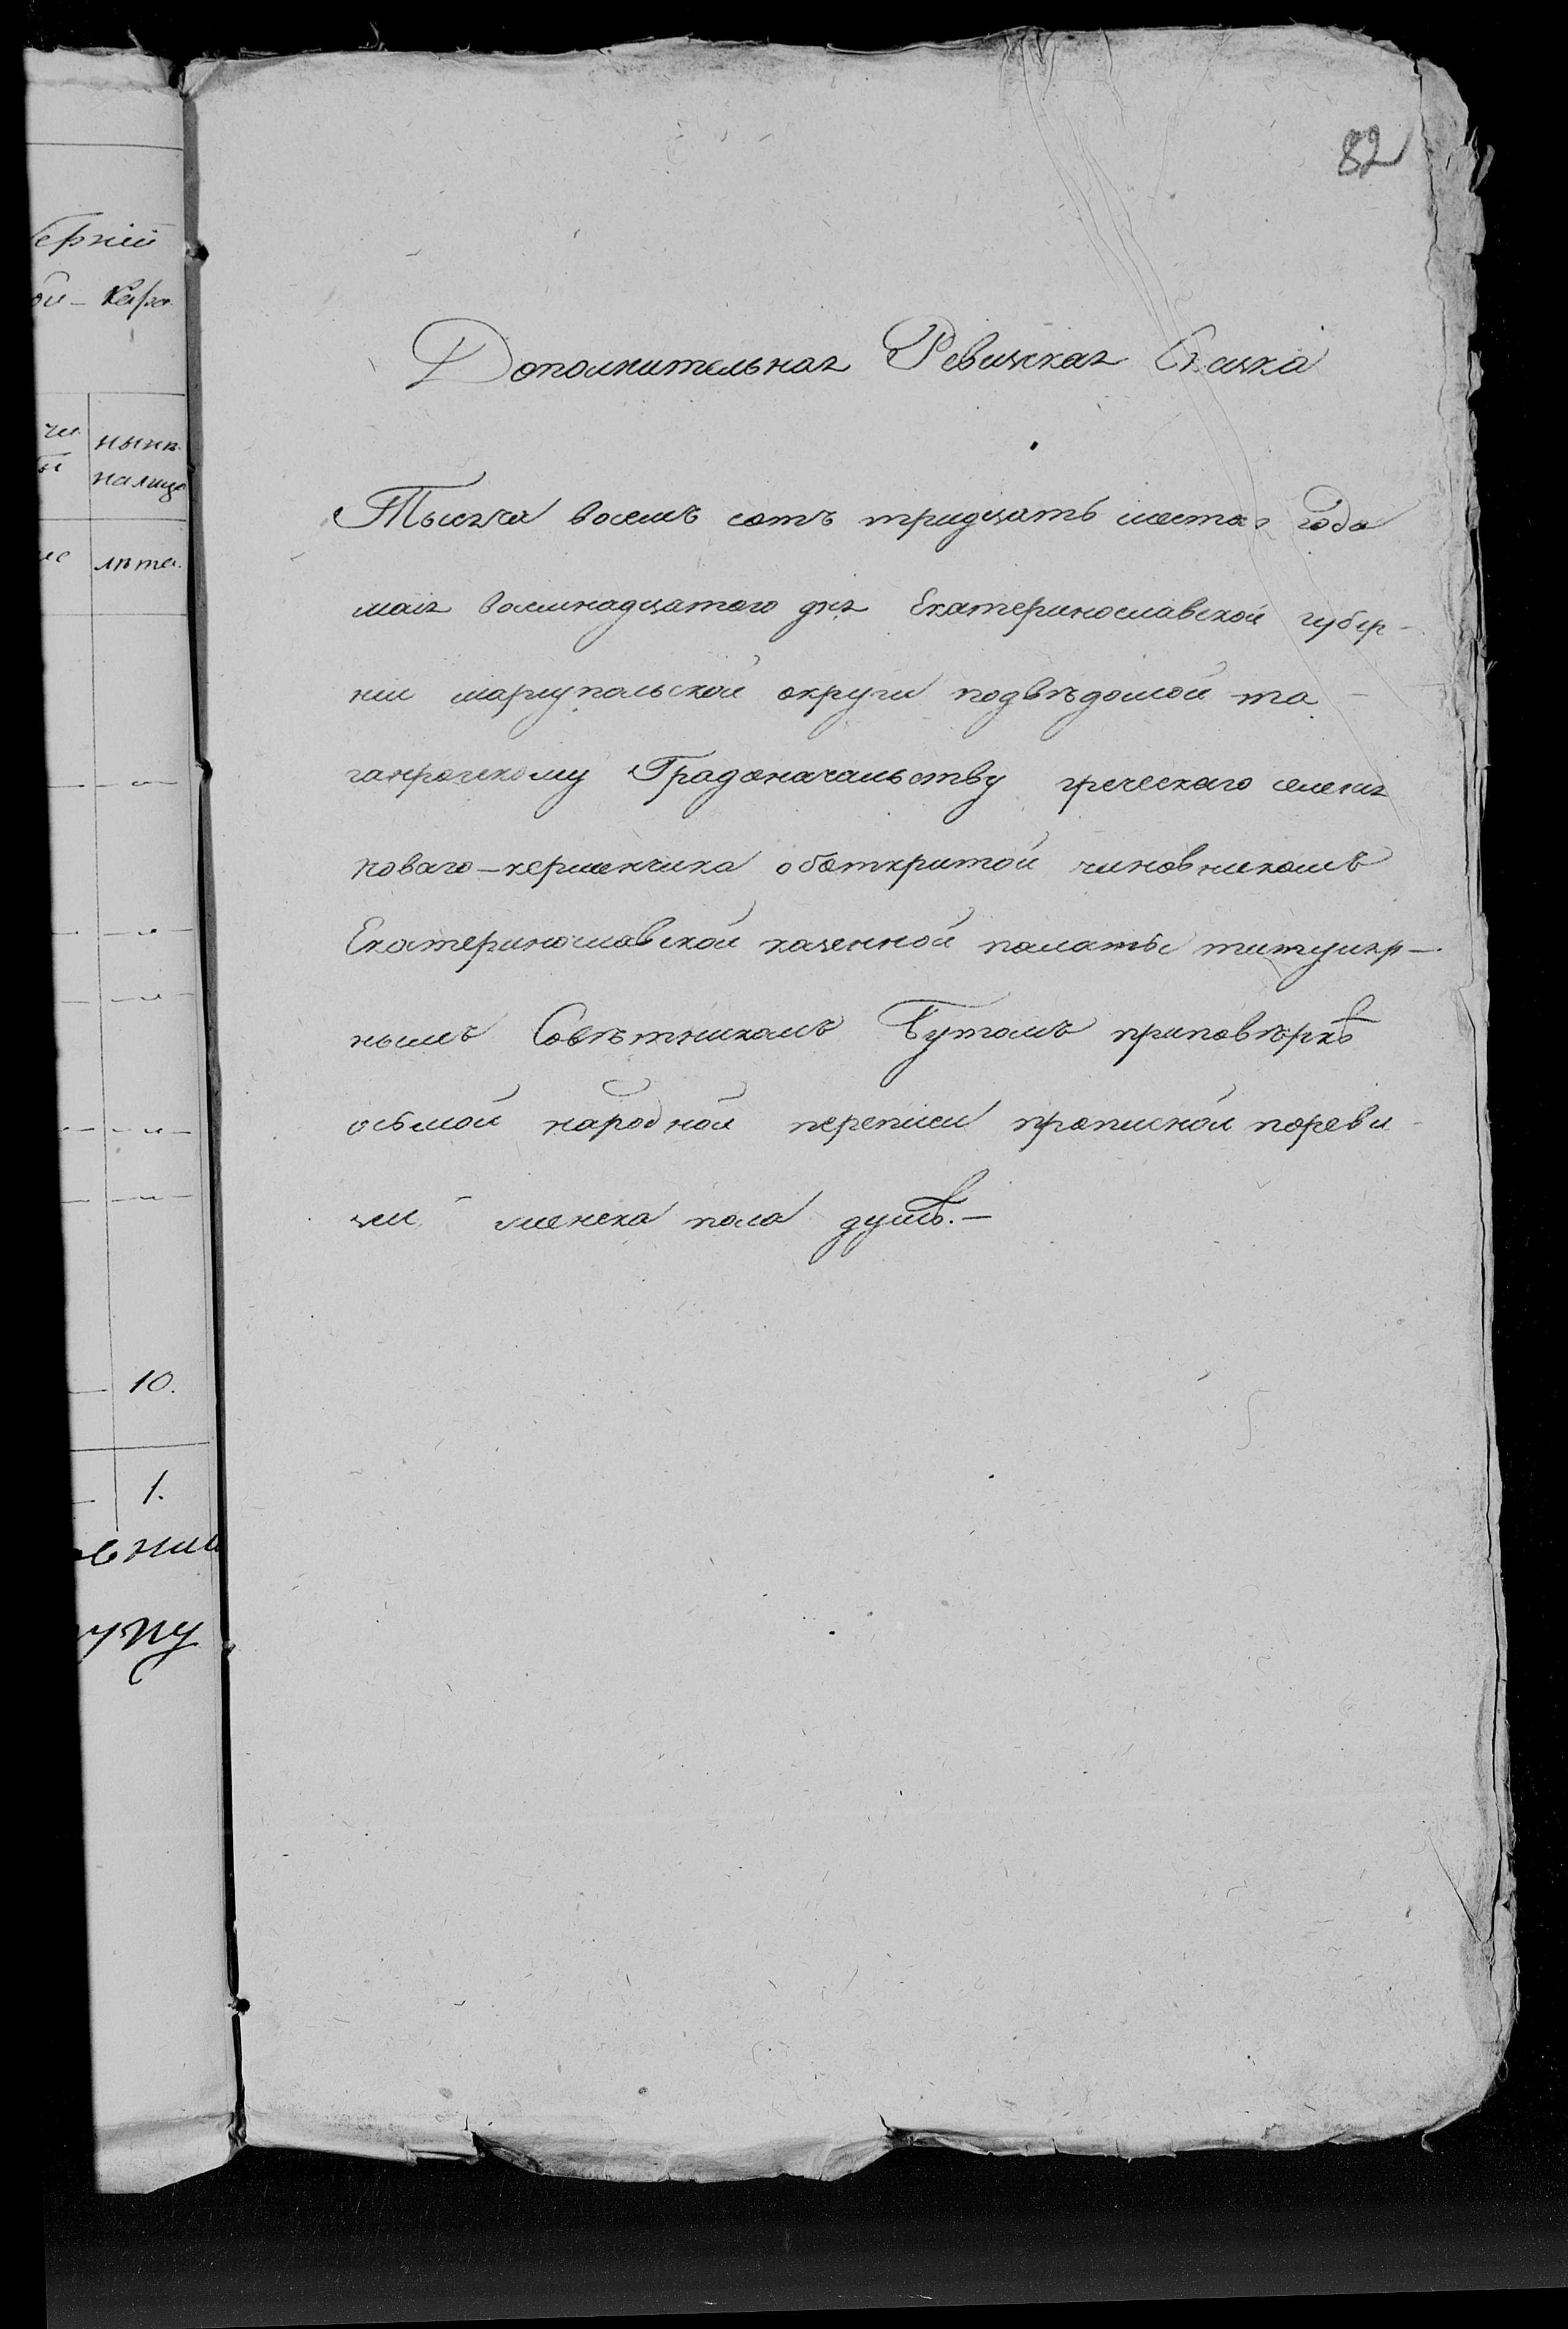 82
Дополнительная Ревизская Сказка
Тысяча восемъ сотъ тридцать шестаго года
маія восемнадцатого дня Екатеринославской губер-
ніи мариупольской округи подвѣдомой та-
ганрогскому Градоначальству греческаго селенія
новаго-керменчика оботкритой чиновникомъ
Екатеринославской казенной палаты титуляр-
нымъ Совѣтникомъ Бутомъ приповѣркѣ
осьмой народной переписи прописной пореви-
зіи женска пола душѣ.-
нынѣ
налицо
лѣта
10.
1.